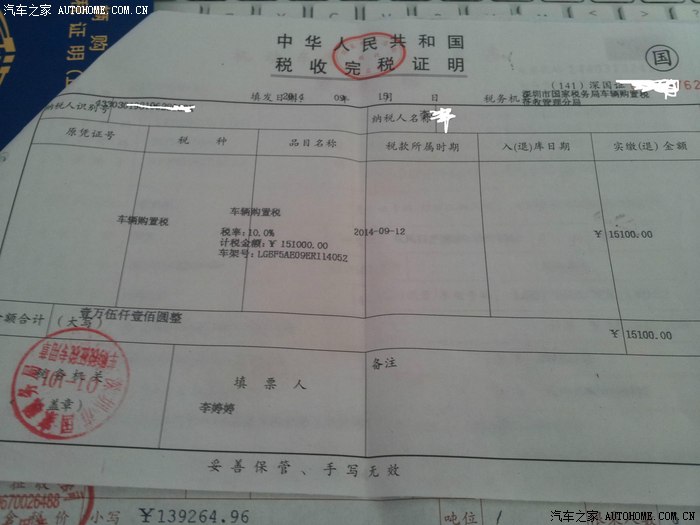 汽车之家 AUTOHOME.COM.CN
辆 购
证明(
中华人民共和国
税收完税证明
国
(141) 深国证
62
填发日期 2014 年 09 月 15 日
税务机
深圳市国家税务局车辆购置税
征收管理分局
纳税人识别号
纳税人名称
原凭证号 税 种 品目名称 税款所属时期 入(退)库日期 实缴(退)金额
车辆购置税 车辆购置税
税率:10.0% 2014-09-12 ¥ 15100.00
计税金额:¥ 151000.00
车架号:LGBF5AE09ER114052
金额合计 (大写) 壹万伍仟壹佰圆整 ¥15100.00
税务机关
(盖章)
填票人
李婷婷
备注
妥善保管、手写无效
670026488
小写 ¥139264.96 吨位
汽车之家 AUTOHOME.COM.CN